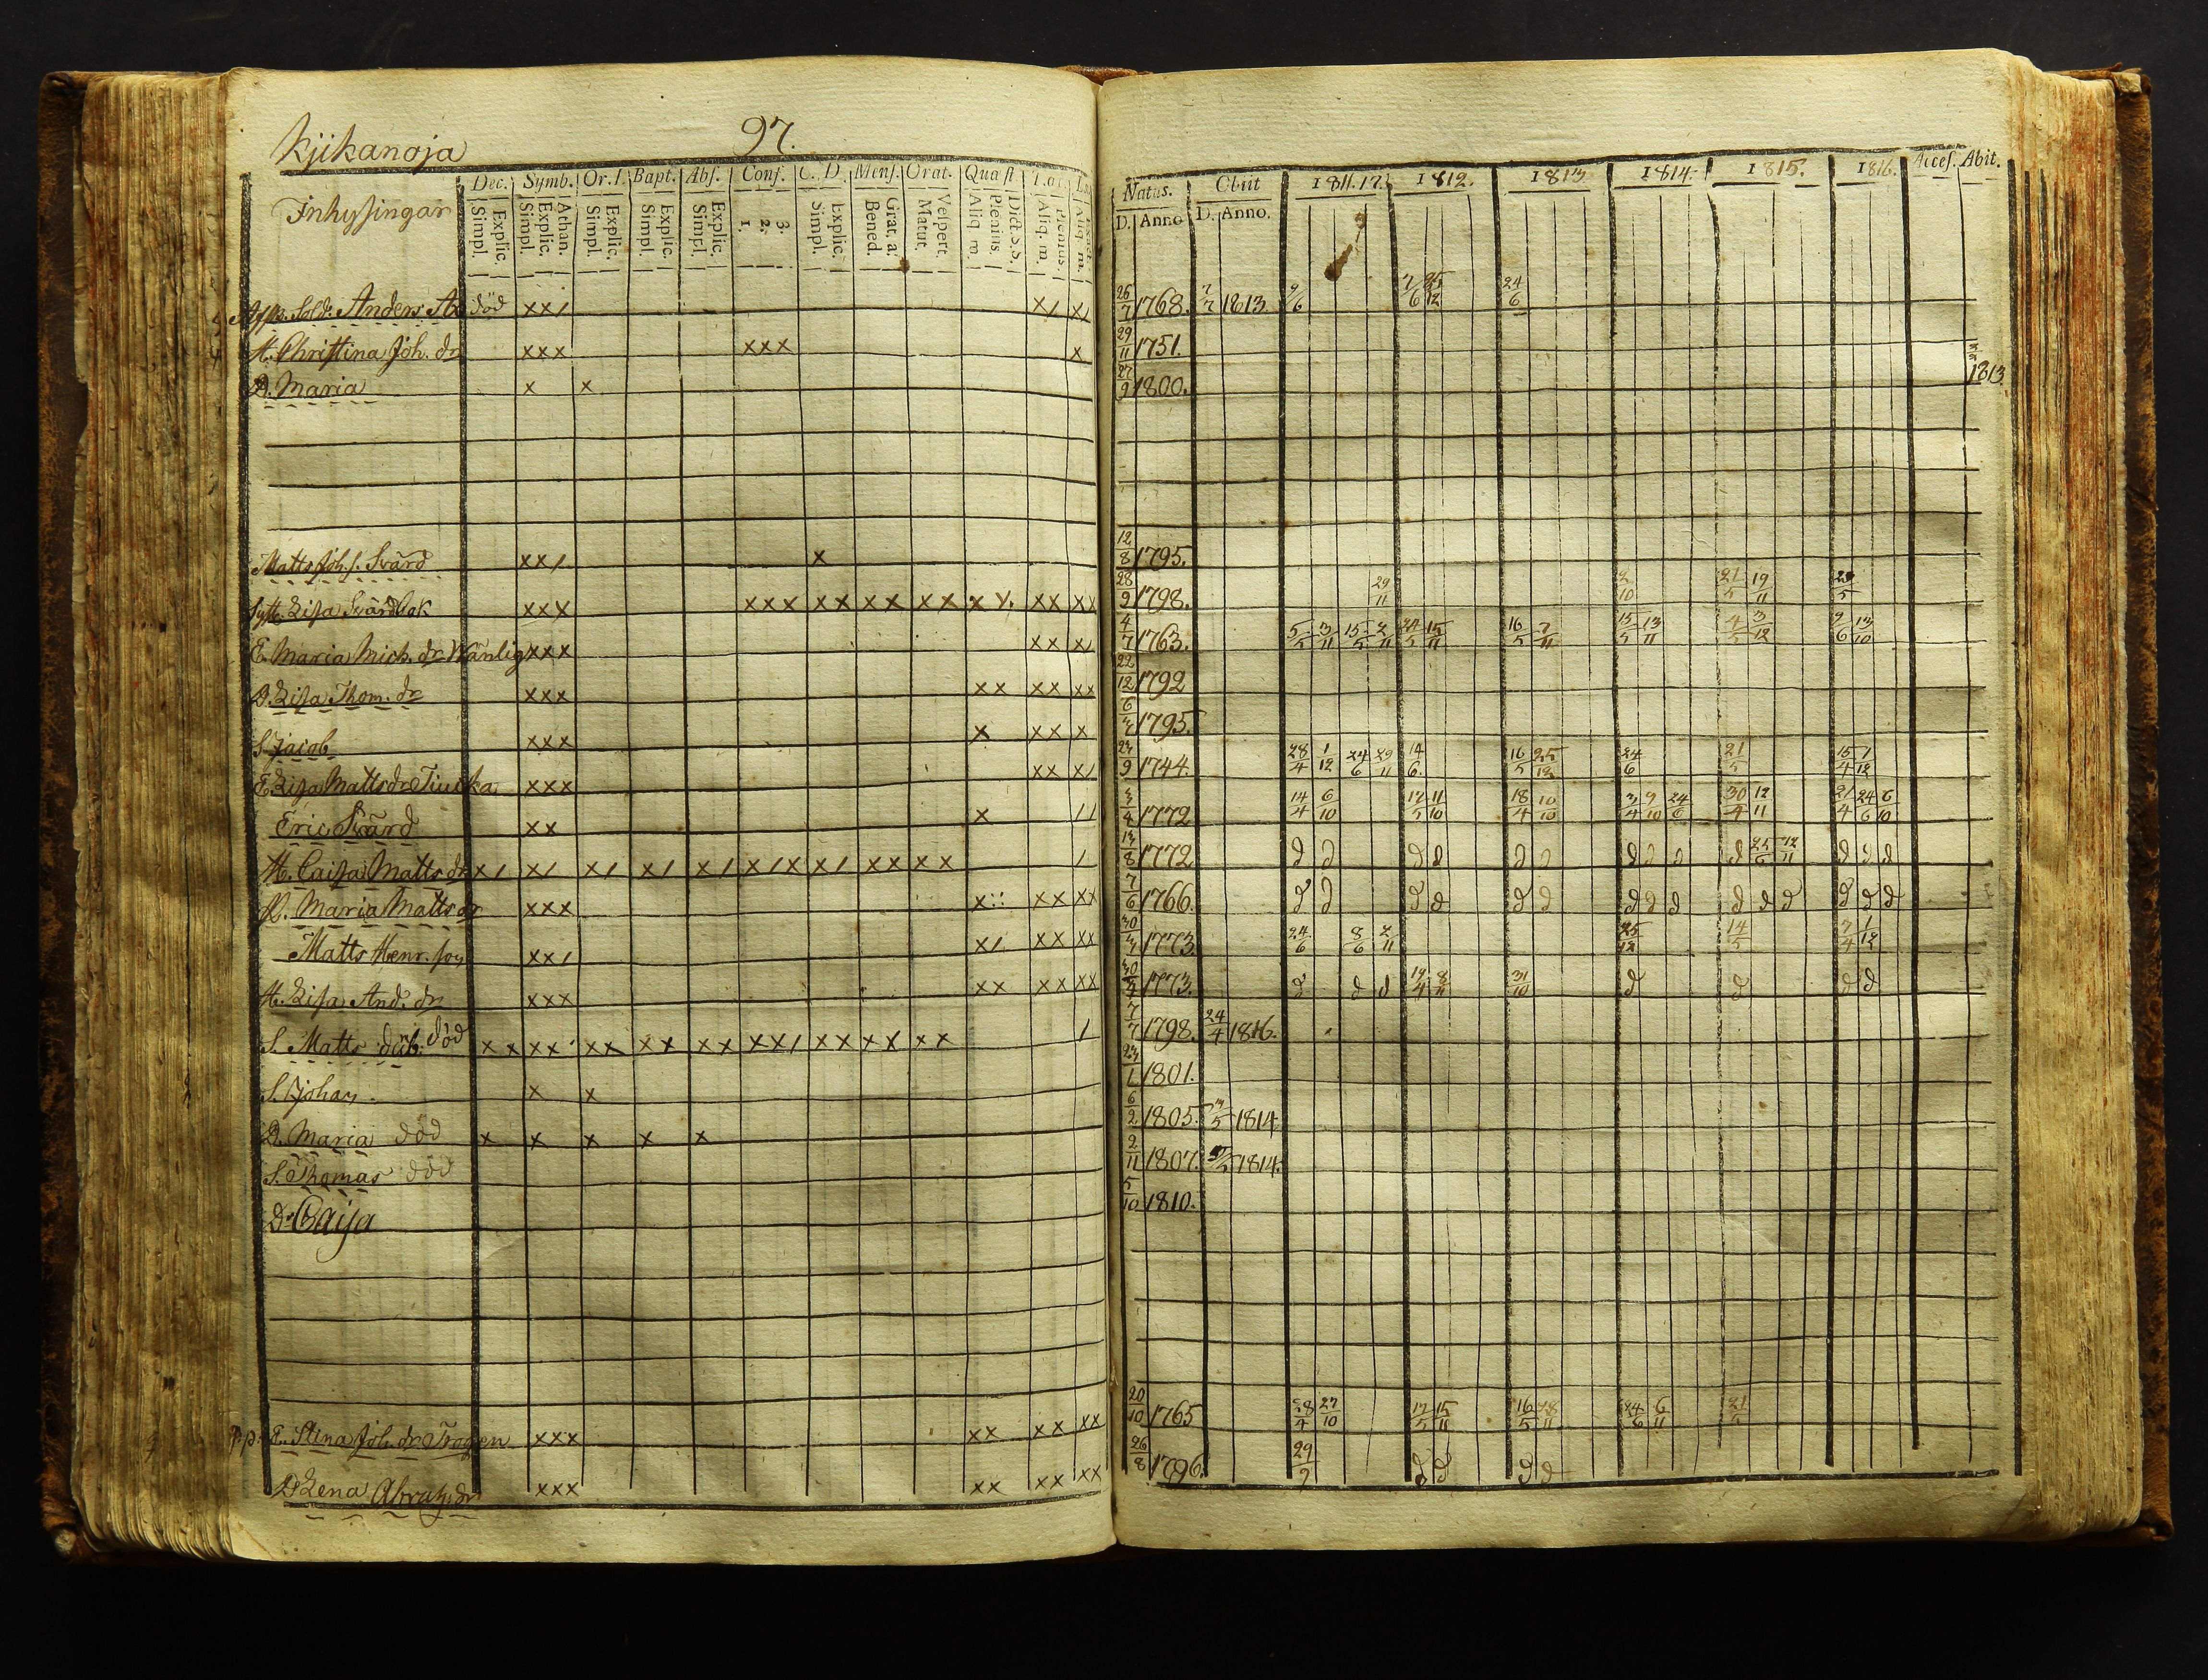 Kjikanoja 97.
Dec. Symb. Or. Bapt. Abs. Conf. C. D. Mens. Orat. Quæst
Natus. Obiit 1811. 1812. 1813 1814. 1815. 1816. Acces. Abit.
Inhysingar
Explic. Simpl. Athan. Explic. Simpl. Explic. Simpl. Explic. Simpl. Explic. Simpl. 3. 2. 1. Explic. Simpl. Grat. a. Bened. Vespert. Matut. Dict. S. S. Plenius. Aliq. m. Plenius. Aliq. m. Aliq. m.
D. Anno D. Anno.
Sold. Anders Ax död xx/ x/ x/ 26/7 1768. 7/7 1813. 24/6
H. Christina Joh. dr xxx xxx x 29/11 1751.
D. Maria x x 27/9 1800. 1813
Matts Joh. s. Svärd xx/ x 12/8 1795.
Lisa Svärdbok xxx xxx xx xx xx xx xx 28/9 1798. 29/11 8/10 21/5 19/11
E. Maria Mich. dr Wänlig xxx xx x/ 4/7 1763. 5/5 3/11 15/5 2/11 24/5 15/11 16/5 7/11 15/5 13/11 4/5 3/12 9/6 13/10
D. Lisa Thom. dr xxx xx xx xx 22/12 1792
S. Jacob xxx x xx x 1795.
E. Lisa Matts dr xxx xx x/ 1744. 28/4 1/12 24/6 29/11 14/6. 16/5 25/12 24/6 21/5 15/4 1/12
Eric Svärd xx x // 1772 14/4 6/10 17/5 11/10 18/4 10/10 3/4 9/10 24/6 30/4 12/11 21/4 24/6 6/10
H. Caisa Matts dr x/ x/ x/ x/ x/ x/x x/ xx xx / 13/8 1772 d d d d d d d d d d 25/6 12/11 d d d
H. Maria Matts dr xxx x:: xx xx 7/6 1766. d d d d d d d d d d d d d d d
Matts Henr. son xx/ x/ xx xx 1773. 24/6 8/6 2/11 25/12 14/5 7/4 1/12
H. Lisa And. dr xxx xx xx xx 1773. d d d 19/4 8/11 31/10 d d d d
S. Matts död xx xx xx xx xx xx/ xx xx xx / 7/7 1798. 24/4 1816.
S. Johan x x 1801.
D. Maria död x x x x x 6/2 1805. 3/5 1814
S. Thomas död 2/11 1807. 1814.
Dr Caisa 5/10 1810.
E. Stina Joh. dr Trogen xxx xx xx xx 20/10 1765 28/4 27/10 17/5 15/11 16/5 24/6 6/11 21/5
D. Lena Abrah. dr xxx xx xx xx 26/8 1796. 29/9 d d d d